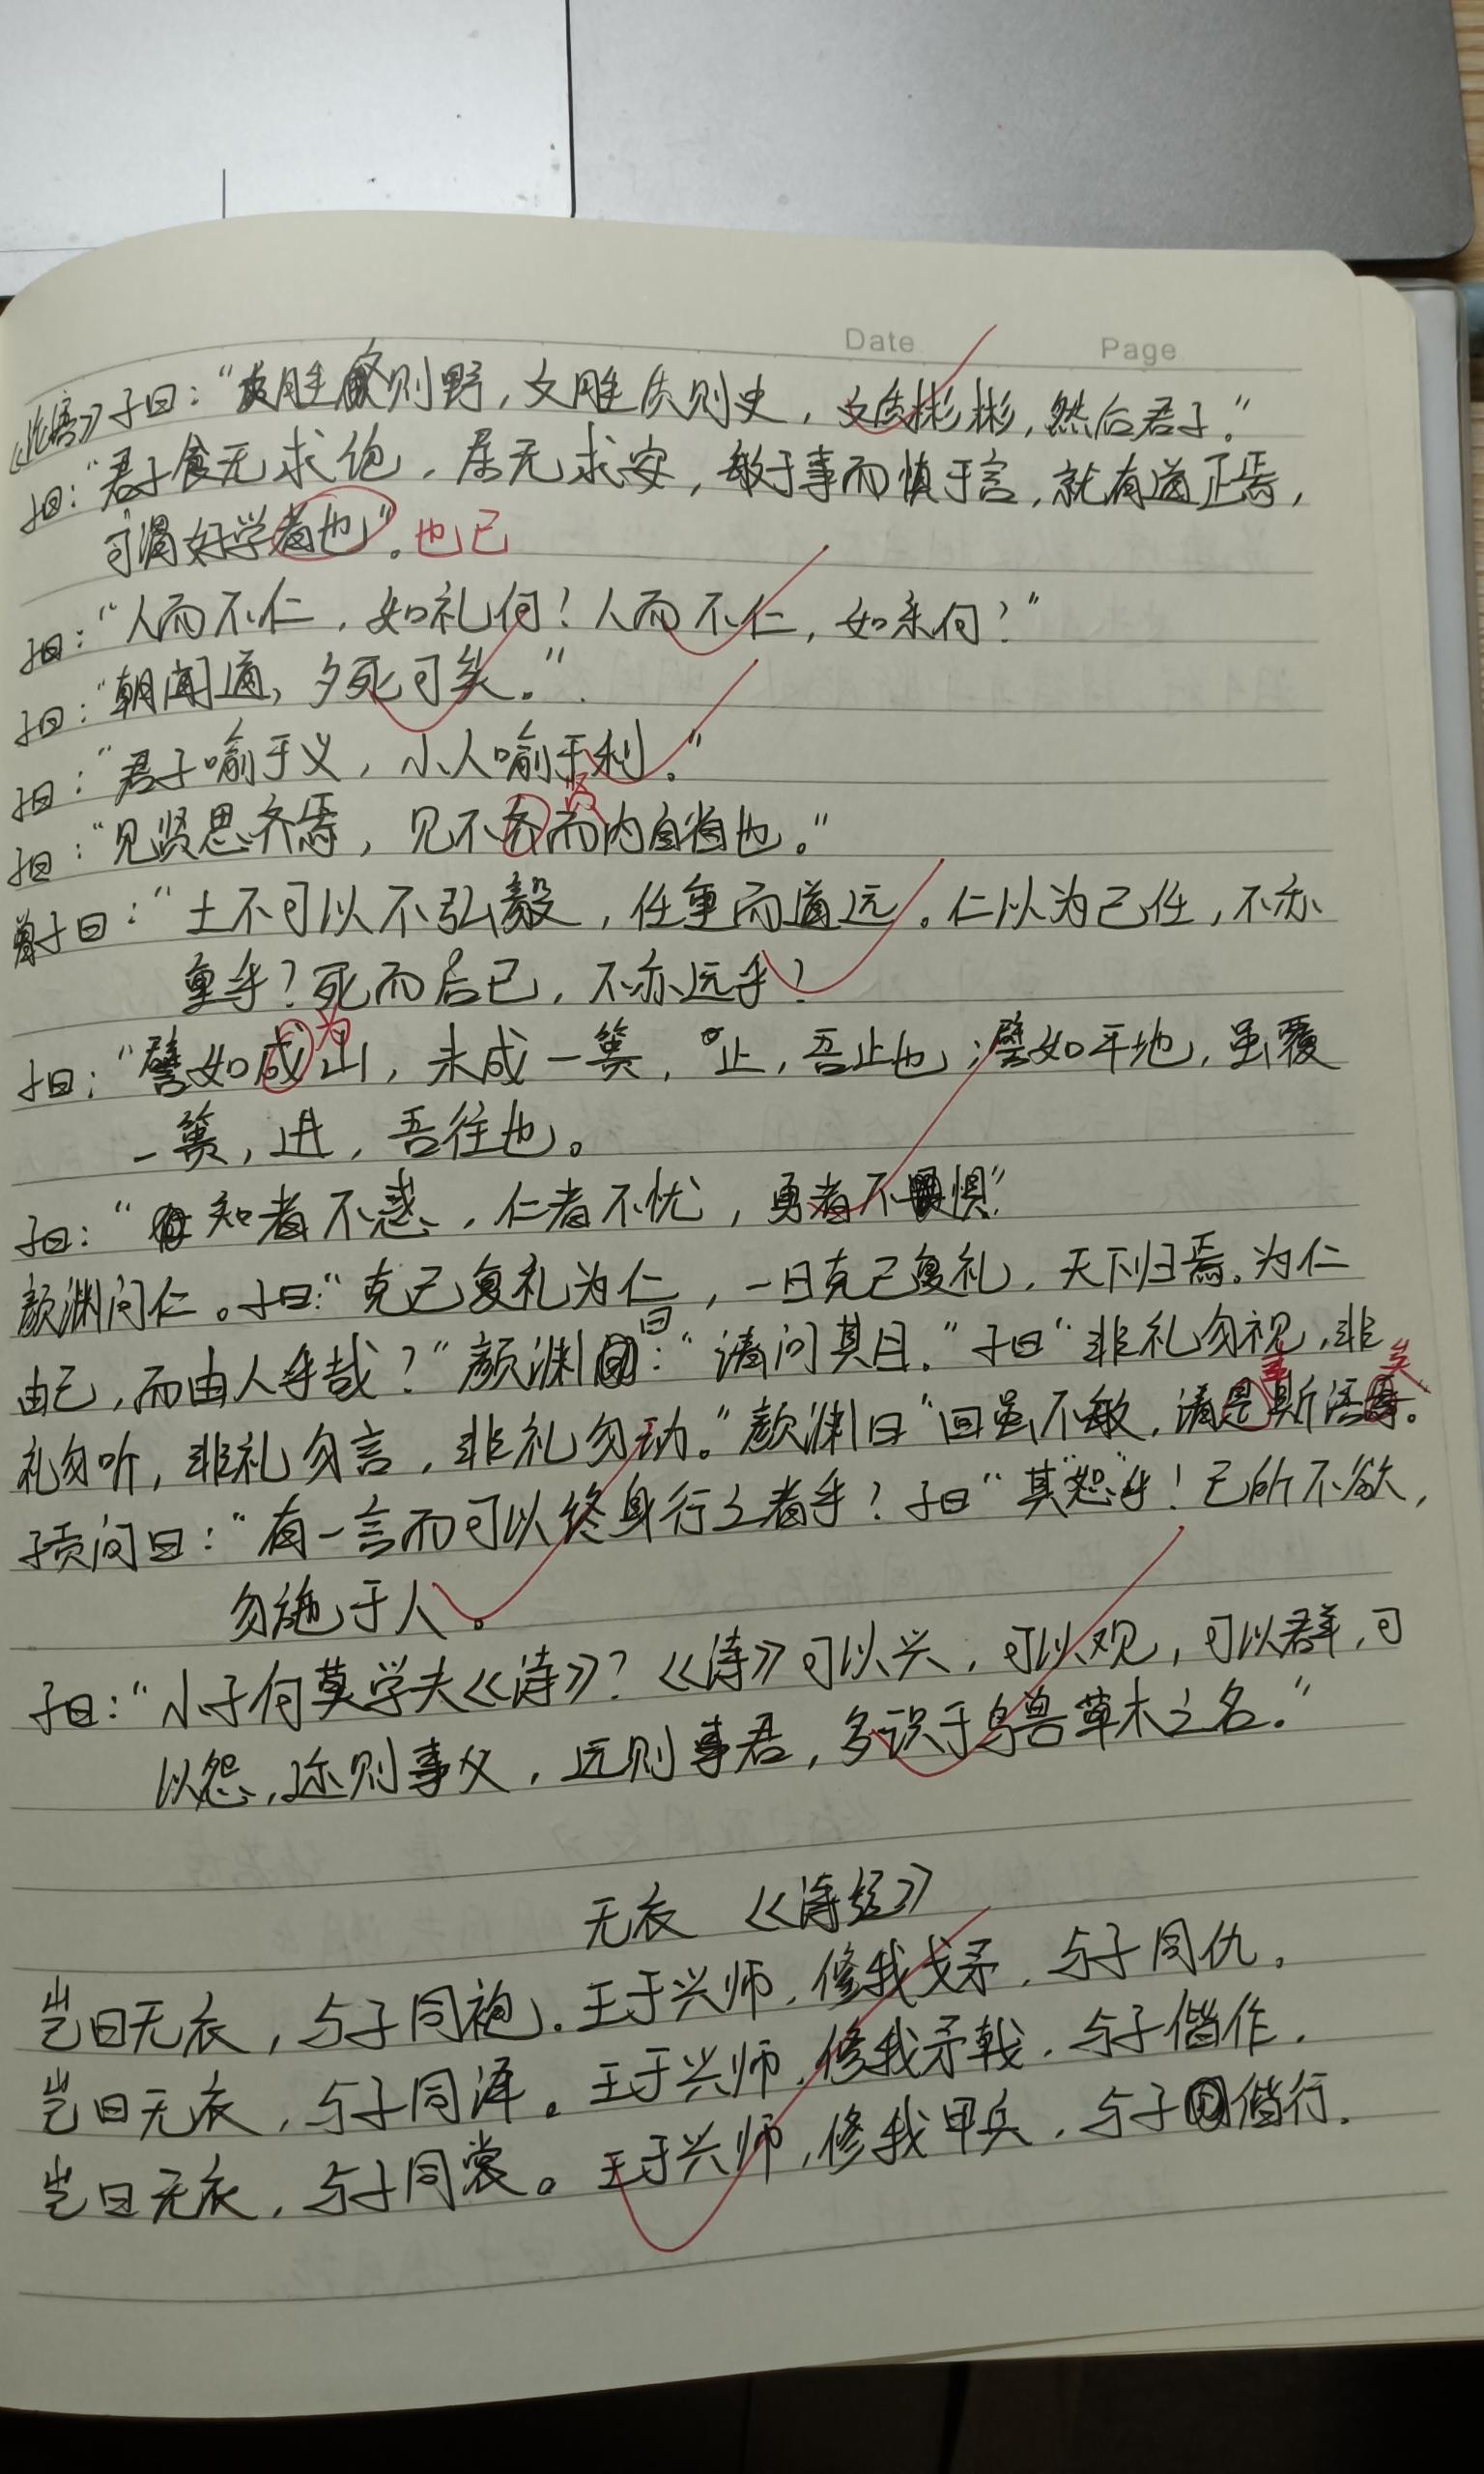 Date Page
《论语》子曰：“质胜文则野，文胜质则史，文质彬彬，然后君子。”
子曰：“君子食无求饱，居无求安，敏于事而慎于言，就有道正焉，
可谓好学者也”。也已
子曰：“人而不仁，如礼何？人而不仁，如乐何？”
子曰：“朝闻道，夕死可矣。”
子曰：“君子喻于义，小人喻于利。”
贤
子曰：“见贤思齐焉，见不齐而内自省也。”
曾子曰：“士不可以不弘毅，任重而道远。仁以为己任，不亦
重乎？死而后已，不亦远乎？
为
子曰：“譬如成山，未成一篑，止，吾止也；譬如平地，虽覆
一篑，进，吾往也。
子曰：“知者不惑，仁者不忧，勇者不惧”
颜渊问仁。子曰：“克己复礼为仁，一日克己复礼，天下归焉。为仁
由己，而由人乎哉？”颜渊曰：“请问其目。”子曰“非礼勿视，非
事 矣
礼勿听，非礼勿言，非礼勿动。”颜渊曰“回虽不敏，请是斯语焉。
子贡问曰：“有一言而可以终身行之者乎？子曰“其“恕”乎！己所不欲，
勿施于人。
子曰：“小子何莫学夫《诗》？《诗》可以兴，可以观，可以群，可
以怨，迩则事父，远则事君，多识于鸟兽草木之名。”
无衣 《诗经》
岂曰无衣，与子同袍。王于兴师，修我戈矛，与子同仇。
岂曰无衣，与子同泽。王于兴师，修我矛戟，与子偕作。
岂曰无衣，与子同裳。王于兴师，修我甲兵，与子偕行。